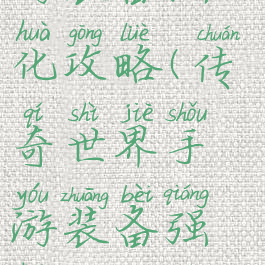 huà gōng lüè chuán
化攻略(传
qí shì jiè shǒu
奇世界手
yóu zhuāng bèi qiáng
游装备强